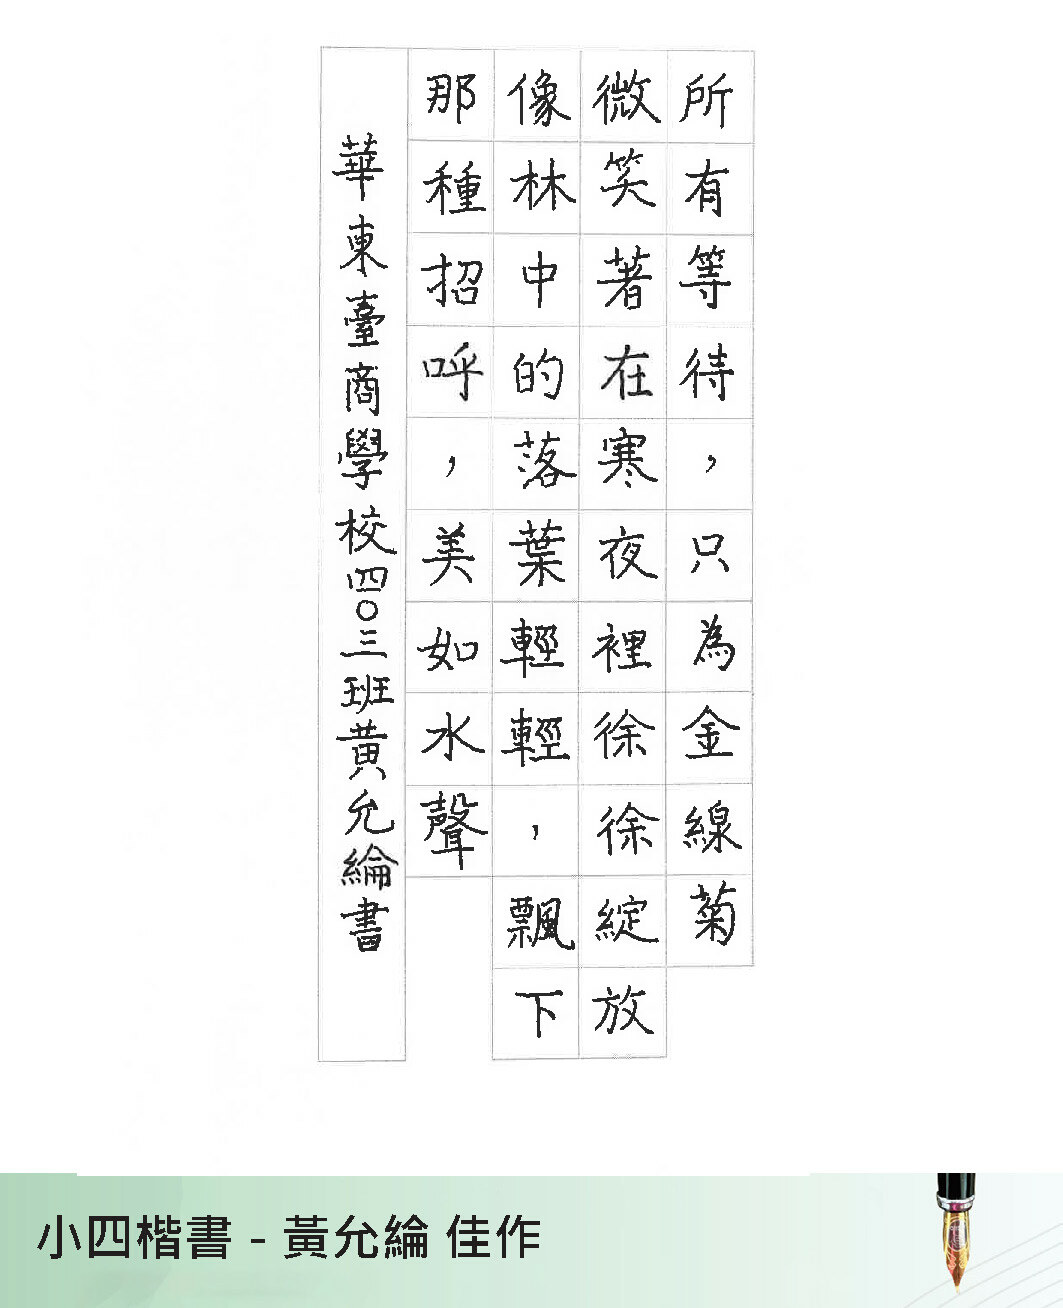 所有等待，只為金線菊
微笑著在寒夜裡徐徐綻放
像林中的落葉輕輕，飄下
那種招呼，美如水聲
華東臺商學校四〇三班黃允綸書
小四楷書 - 黃允綸 佳作